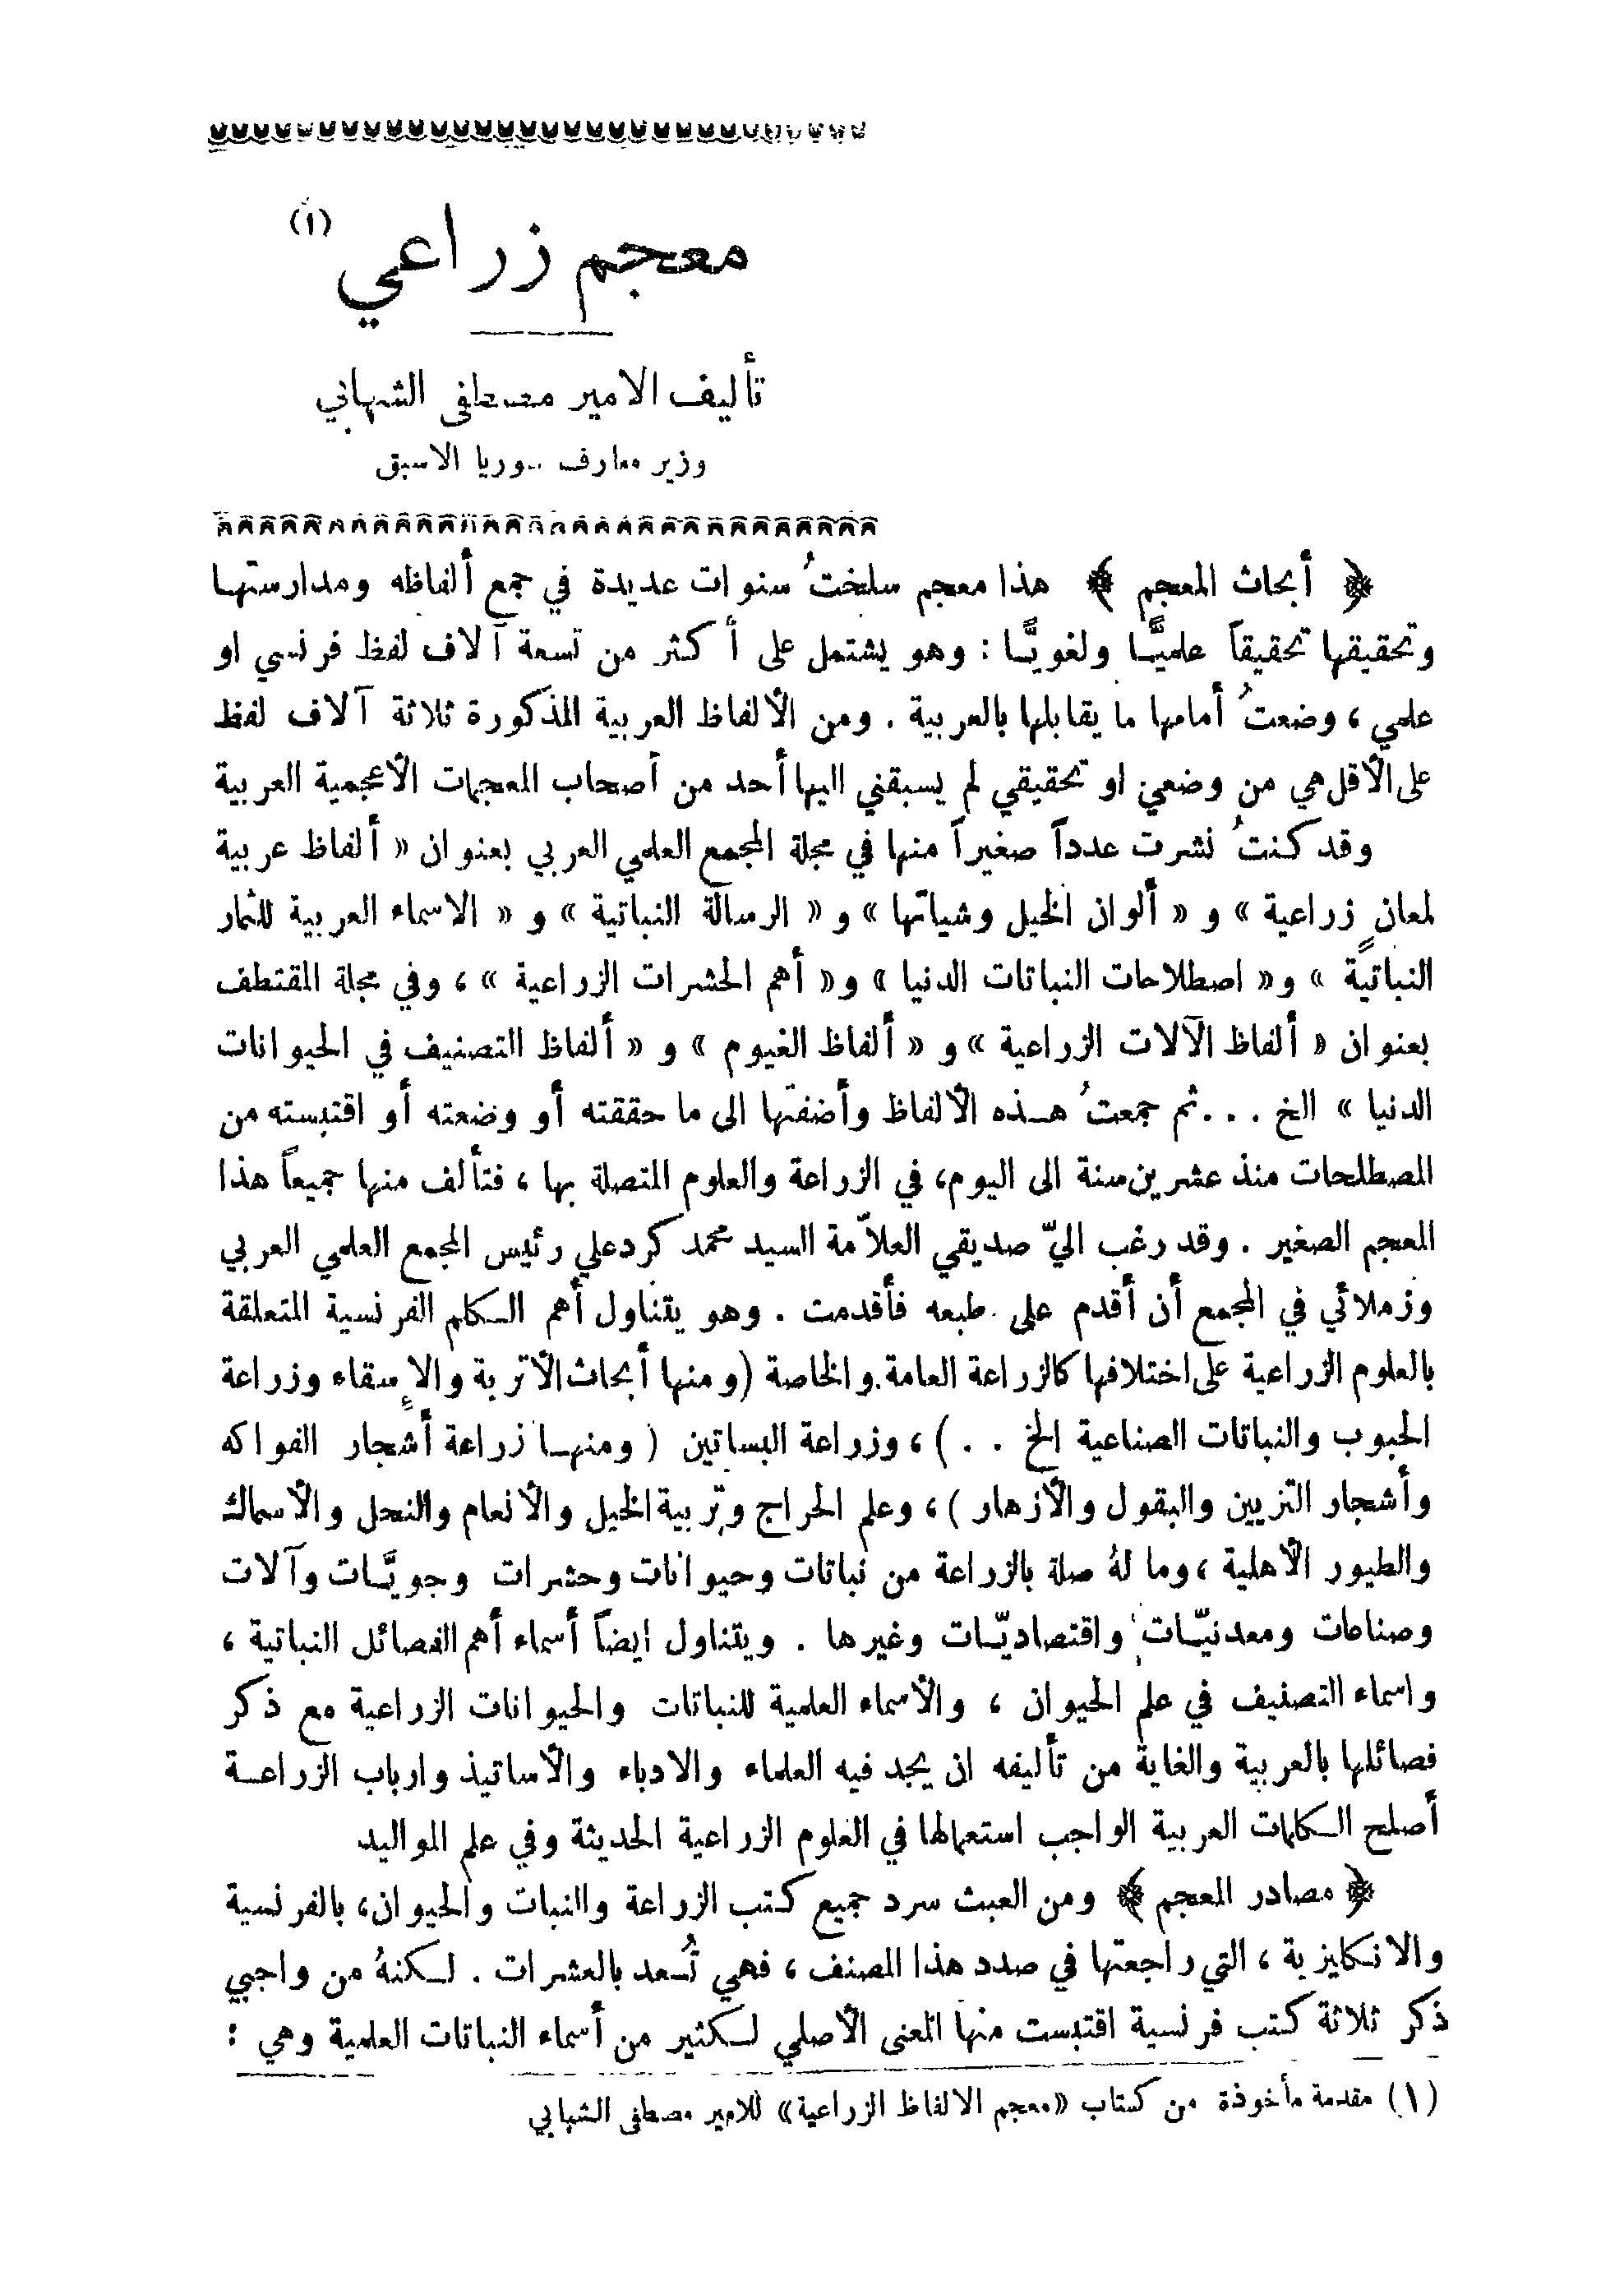 معجم زراعي (١)
تأليف الامير مصطفى الشهابي
وزير معارف سوريا الاسبق
﴿ أبحاث المعجم ﴾ هذا معجم سلختُ سنوات عديدة في جمع ألفاظه ومدارستها
وتحقيقها تحقيقاً علميًّا ولغويًّا : وهو يشتمل على أكثر من تسعة آلاف لفظ فرنسي او
علمي ، وضعتُ أمامها ما يقابلها بالعربية . ومن الألفاظ العربية المذكورة ثلاثة آلاف لفظ
على الأقل هي من وضعي او تحقيقي لم يسبقني اليها أحد من أصحاب المعجمات الأعجمية العربية
وقد كنتُ نشرت عدداً صغيراً منها في مجلة المجمع العلمي العربي بعنوان « ألفاظ عربية
لمعانٍ زراعية » و « ألوان الخيل وشياتها » و « الرسالة النباتية » و « الاسماء العربية للثمار
النباتية » و« اصطلاحات النباتات الدنيا » و« أهم الحشرات الزراعية » ، وفي مجلة المقتطف
بعنوان « ألفاظ الآلات الزراعية » و « ألفاظ الغيوم » و « ألفاظ التصنيف في الحيوانات
الدنيا » الخ . . . ثم جمعتُ هـذه الألفاظ وأضفتها الى ما حققته أو وضعته أو اقتبسته من
المصطلحات منذ عشرين سنة الى اليوم، في الزراعة والعلوم المتصلة بها ، فتألف منها جميعاً هذا
المعجم الصغير . وقد رغب اليّ صديقي العلاّمة السيد محمد كرد علي رئيس المجمع العلمي العربي
وزملائي في المجمع أن أقدم على طبعه فأقدمت . وهو يتناول أهم الكلم الفرنسية المتعلقة
بالعلوم الزراعية على اختلافها كالزراعة العامة والخاصة (ومنها أبحاث الأتربة والإسقاء وزراعة
الحبوب والنباتات الصناعية الخ . . ) ، وزراعة البساتين ( ومنهـا زراعة أشجار الفواكه
وأشجار التزيين والبقول والأزهار ) ، وعلم الحراج وتربية الخيل والأنعام والنحل والأسماك
والطيور الأهلية ، وما لهُ صلة بالزراعة من نباتات وحيوانات وحشرات وجويَّـات وآلات
وصناعات ومعدنيّـات واقتصاديّـات وغيرها . ويتناول ايضاً أسماء أهم الفصائل النباتية ،
واسماء التصنيف في علم الحيوان ، والأسماء العلمية للنباتات والحيوانات الزراعية مع ذكر
فصائلها بالعربية والغاية من تأليفه ان يجد فيه العلماء والادباء والأساتيذ وارباب الزراعـة
أصلح الـكلمات العربية الواجب استعمالها في العلوم الزراعية الحديثة وفي علم المواليد
﴿ مصادر المعجم ﴾ ومن العبث سرد جميع كتب الزراعة والنبات والحيوان، بالفرنسية
والانكليزية ، التي راجعتها في صدد هذا المصنف ، فهي تُـعد بالعشرات . لـكنهُ من واجبي
ذكر ثلاثة كتب فرنسية اقتبست منها المعنى الأصلي لـكثير من أسماء النباتات العلمية وهي :
(١) مقدمة مأخوذة من كتاب «معجم الالفاظ الزراعية» للامير مصطفى الشهابي